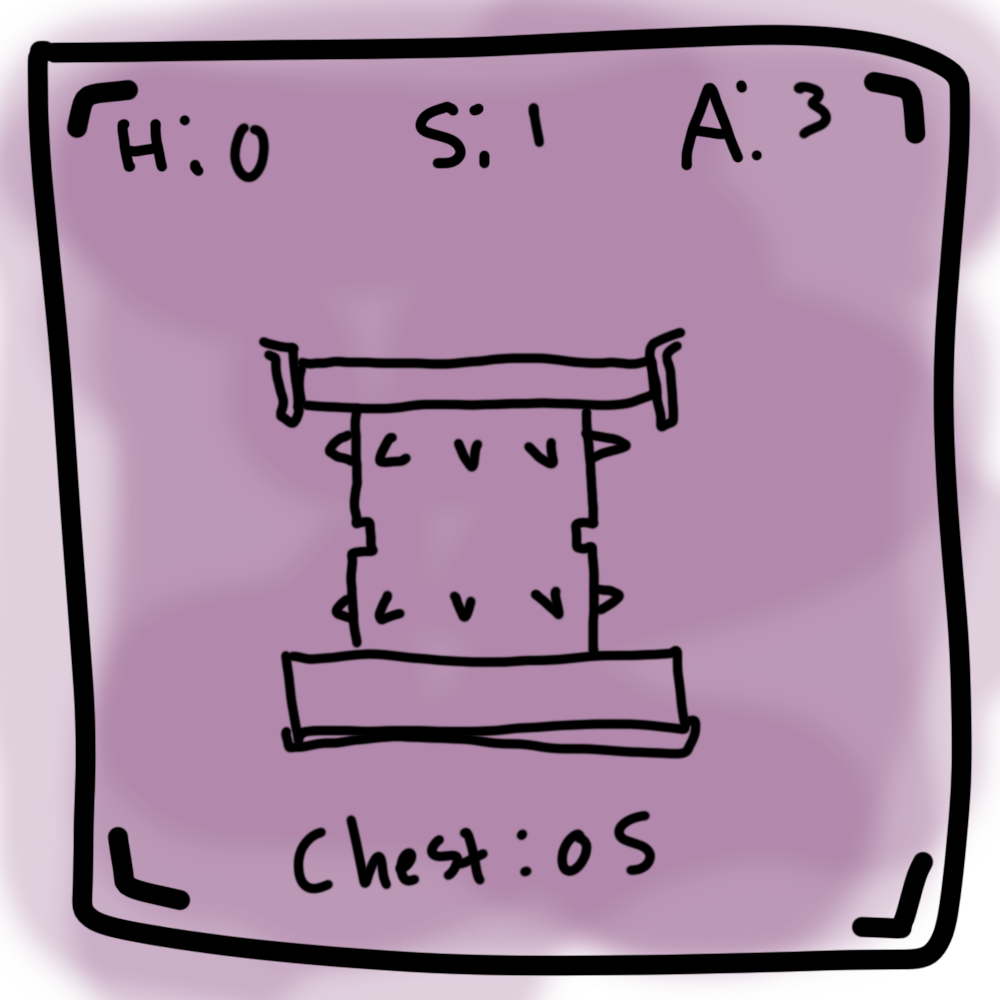 H: 0 S: 1 A: 3
Chest: OS